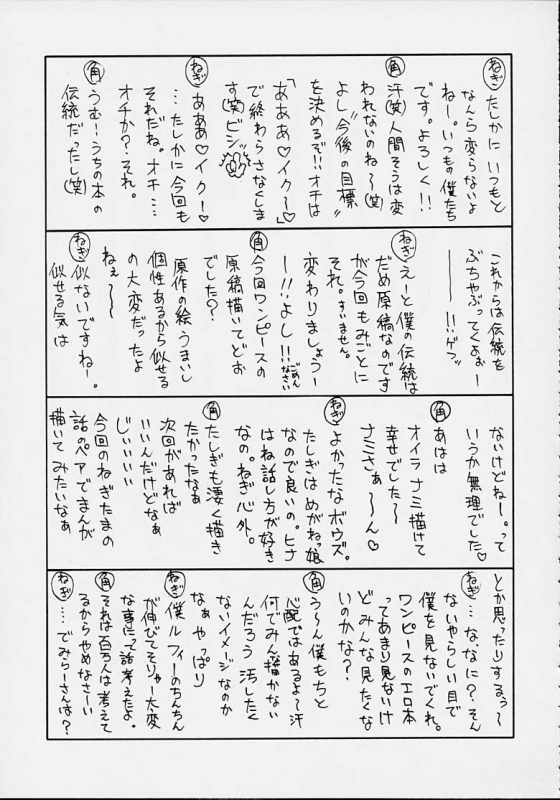 ねぎ たしかにいつもと
なんら変らないよ
ねー。いつもの僕たち
です。よろしく!!
角 汗(笑)人間そうは変
われないのね〜(笑)
よし"今後の目標"
を決めるぞ!!オチは
「あああ♡イク〜♡」
で終わらさなくしま
す(笑)ビシッ
ねぎ あああ♡イクー♡
…たしかに今回も
それだね。オチ…
オチか?それ。
角 うむ!うちの本の
伝統だったし(笑)
これからは伝統を
ぶちゃぶってくぉぉー
ーーー!!ゲフッ
ねぎ えーと僕の伝統は
だめ原稿なのです
が今回もみごとに
それ。すいません。
変わりましょうー
ー!!!よし!!ごめんなさい
角 今回ワンピースの
原稿描いてどお
でした?
原作の絵うまいし
個性あるから似せる
の大変だったよ
ねぇ〜
ねぎ 似ないですねー。
似せる気は
ないけどねー。って
いうか無理でした♡
角 あはは
オイラ ナミ描けて
幸せでした〜
ナミさぁ〜〜ん♡
ねぎ よかったなボウズ。
たしぎはめがねっ娘
なので良いの。ヒナ
はね話し方が好き
なの。ねぎ心外。
角 たしぎも凄く描き
たかったなぁ
次回があれば
いいんだけどなぁ
じぃいいいい
今回のねぎたまの
話のペアでまんが
描いてみたいなぁ
とか思ったりするぅ〜
ねぎ …な、なに?そん
ないやらしい目で
僕を見ないでくれ。
ワンピースのエロ本
ってあまり見ないけ
どみんな見たくな
いのかな?
角 う〜ん僕もちと
心配ではあるよ〜汗
何でみん描かない
んだろう 汚したく
ないイメージなのか
なぁ やっぱり
ねぎ 僕ルフィーのちんちん
が伸びてそりゃー大変
な事にって話考えたよ。
角 それは百万人は考えて
るからやめなさーい
ねぎ …でみらーさんは?